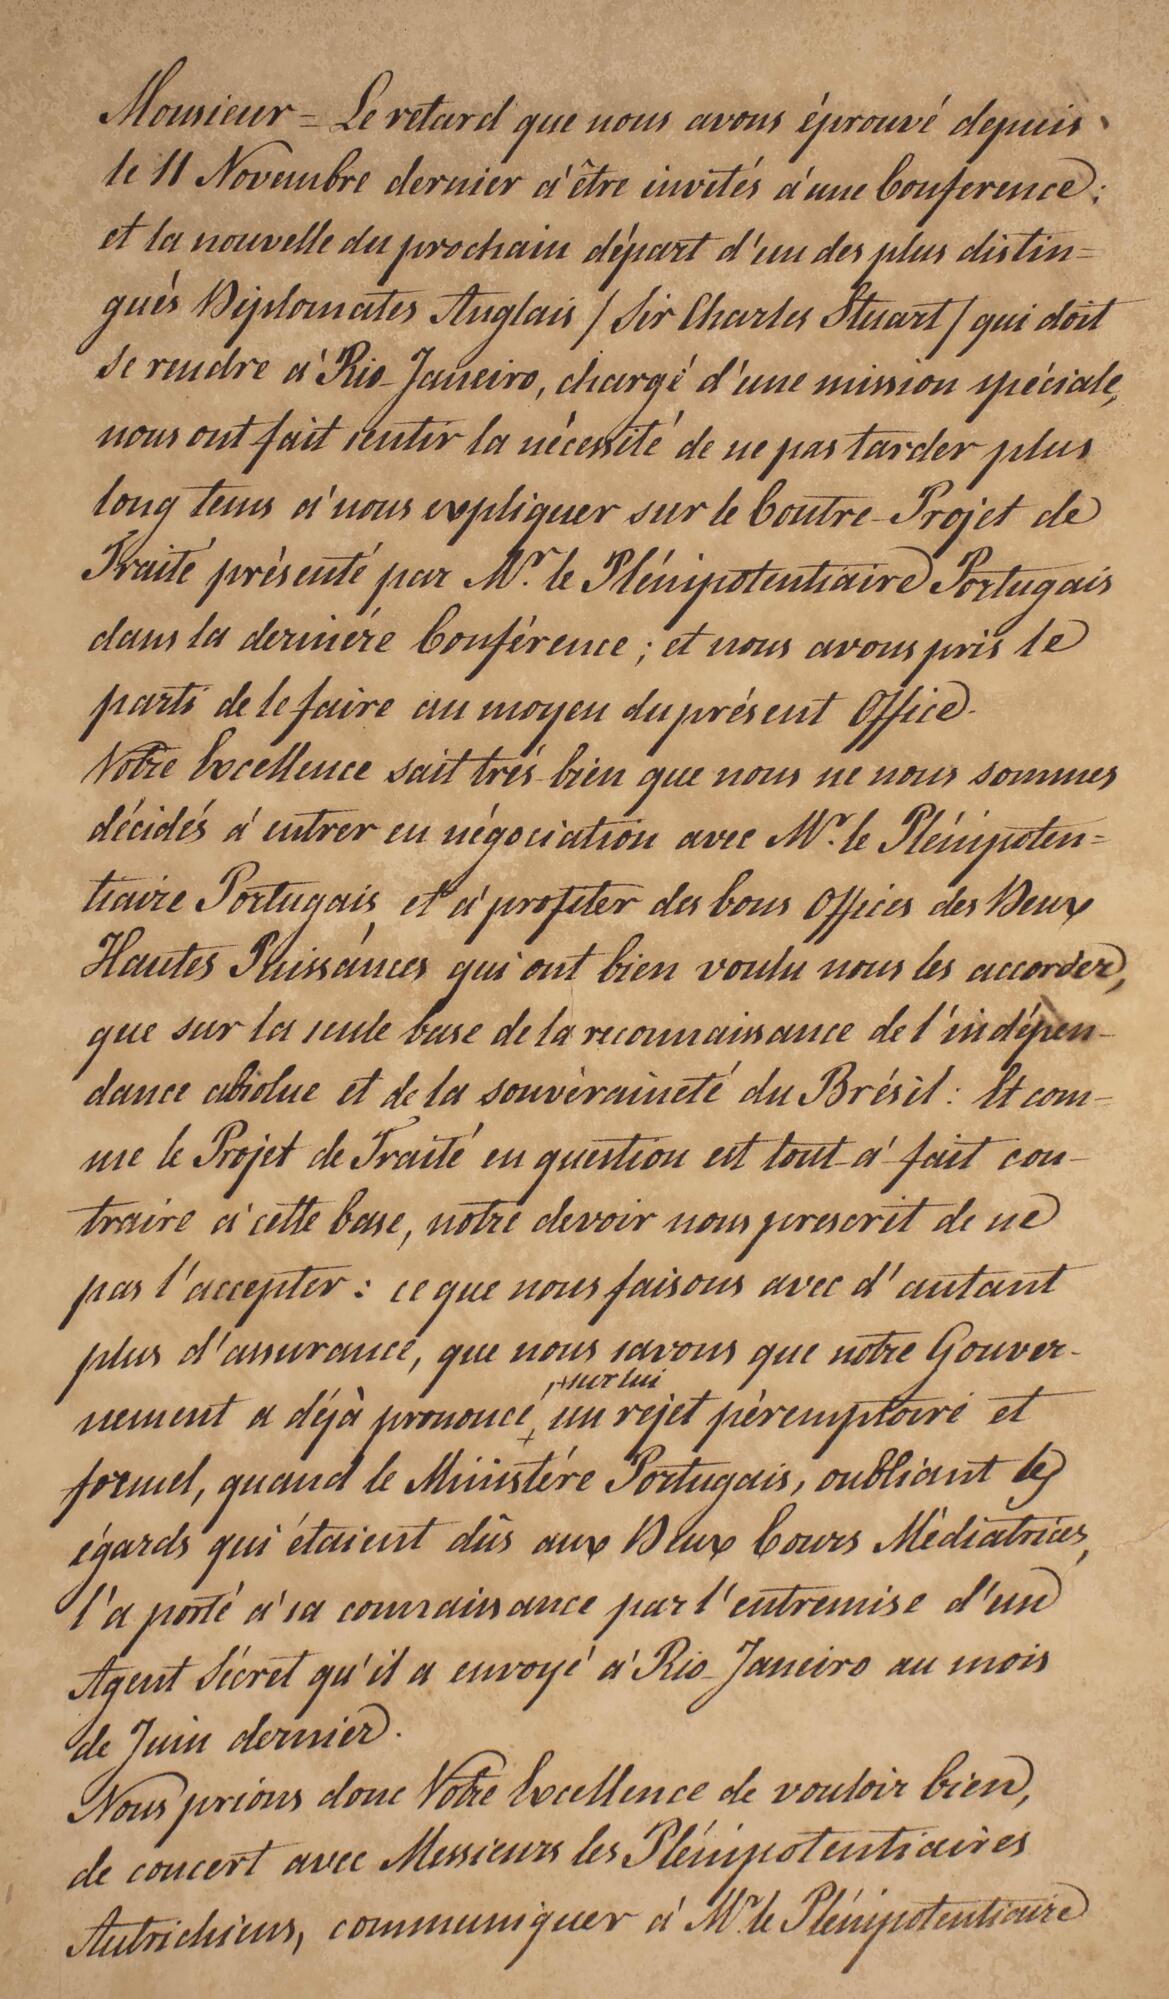 Monsieur = Le retard que nous avons éprouvé depuis
le 11 Novembre dernier à être invités à une Conference :
et la nouvelle du prochain départ d'un des plus distin=
gués Diplomates Anglais / Sir Charles Stuart / qui doit
se rendre à Rio Janeiro, chargé d'une mission spéciale,
nous ont fait sentir la nécessité de ne pas tarder plus
long tems à nous expliquer sur le Contre-Projet de
Traité présenté par Mr. le Plénipotentiaire Portugais
dans la derniére Conférence ; et nous avons pris le
parti de le faire au moyen du présent Office.
Votre Excellence sait trés-bien que nous ne nous sommes
décidés à entrer en négociation avec Mr. le Plénipoten=
tiaire Portugais, et à profiter des bons Offices des Deux
Hautes Puissances qui ont bien voulu nous les accorder,
que sur la seule base de la reconnaissance de l'indépen-
dance absolue et de la souvèraineté du Brésil : Et com-
me le Projet de Traité en question est tout-à-fait con-
traire à cette base, notre devoir nous prescrit de ne
pas l'accepter : ce que nous faisons avec d'autant
plus d'assurance, que nous savons que notre Gouver-
+ sur lui
nement a déjà prononcé, + un rejet péremptoire et
formel, quand le Ministére Portugais, oubliant les
égards qui étaient dûs aux Deux Cours Médiatrices,
l'a porté à sa connaissance par l'entremise d'un
Agent Sécret qu'il a envoyé à Rio-Janeiro au mois
de Juin dernier.
Nous prions donc Votre Excellence de vouloir bien,
de concert avec Messieurs les Plénipotentiaires
Autrichiens, communiquer à Mr. le Plénipotentiaire